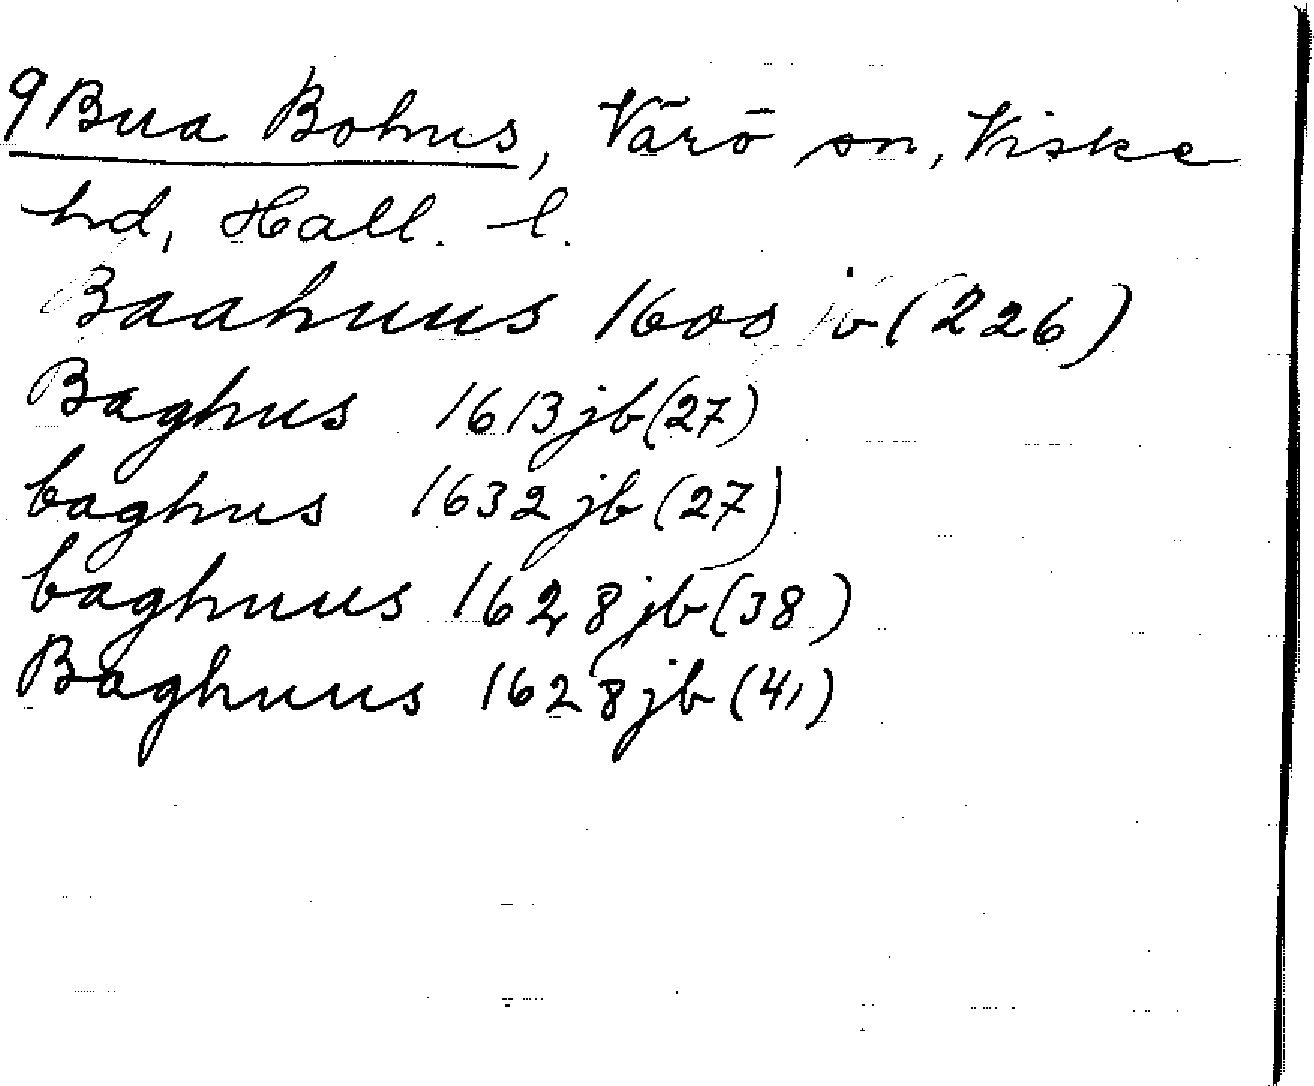 9 Bua Bohus, Värö sn, Viske
hd, Hall. l.
Baahuus 1600 jb (226)
Baghus 1613 jb (27)
baghus 1632 jb (27)
baghuus 1628 jb (38)
Baghuus 1628 jb (41)